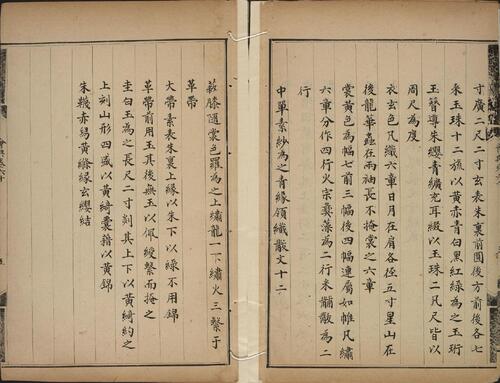 寸廣二尺二寸玄表朱裏前圓後方前後各七
采玉珠十二旒以黃赤青白黑紅綠為之玉珩
玉簪導朱纓青纊充耳綴以玉珠二凡尺皆以
周尺為度
衣玄色凡織六章日月在肩各徑五寸星山在
後龍華蟲在兩袖長不掩裳之六章
裳黃色為幅七前三幅後四幅連屬如帷凡繡
六章分作四行火宗彝藻為二行米黼黻為二
行
中單素紗為之青緣領織黻文十二
蔽膝隨裳色羅為之上繡龍一下繡火三繫于
革帶
大帶素表朱裏上緣以朱下以綠不用錦
革帶前用玉其後無玉以佩綬繫而掩之
圭白玉為之長尺二寸剡其上下以黃綺約之
上刻山形四盛以黃綺囊藉以黃錦
朱韈赤舄黃絛緣玄纓結